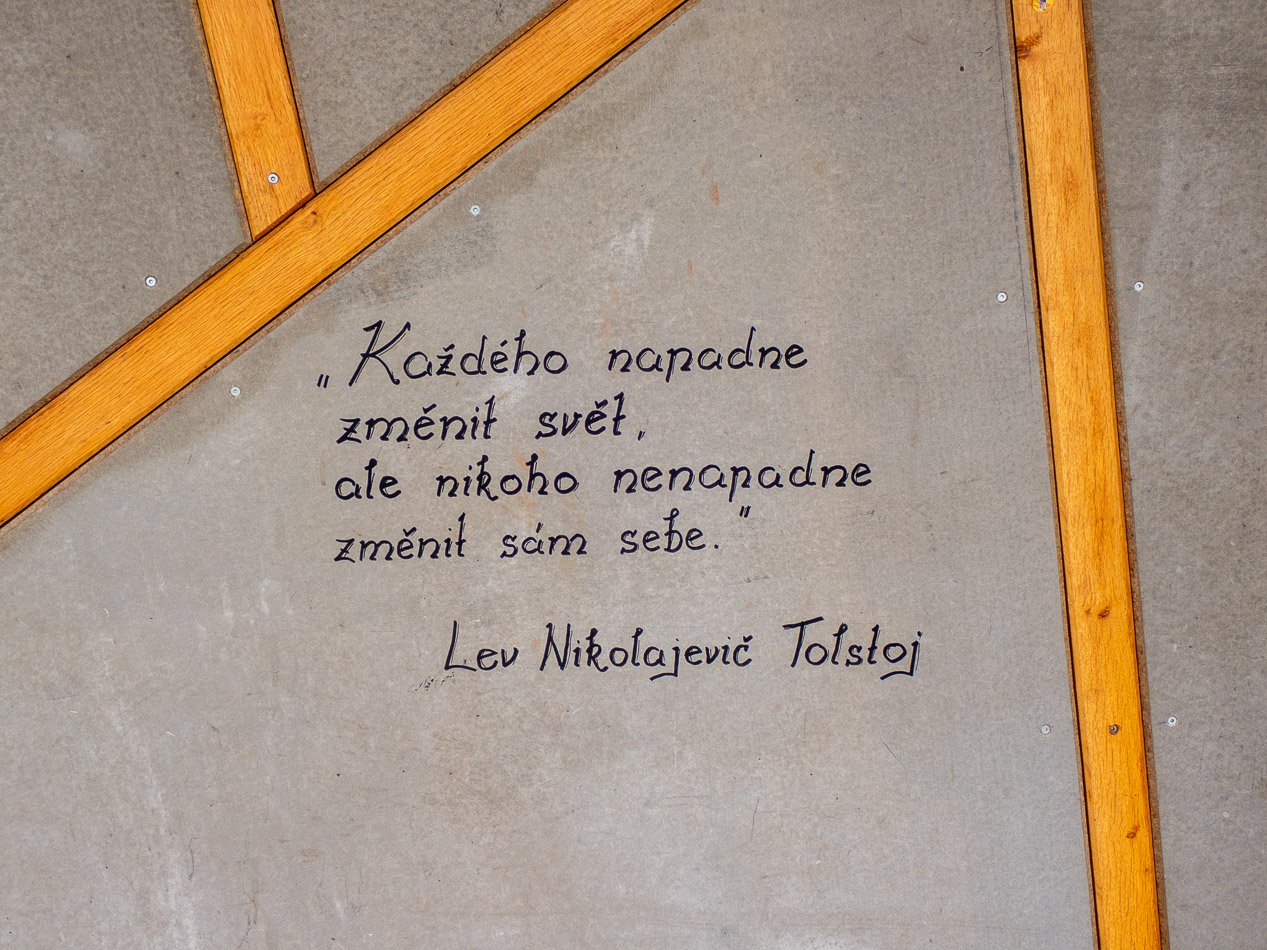 „Každého napadne
změnit svět,
ale nikoho nenapadne
změnit sám sebe."
Lev Nikolajevič Tolstoj